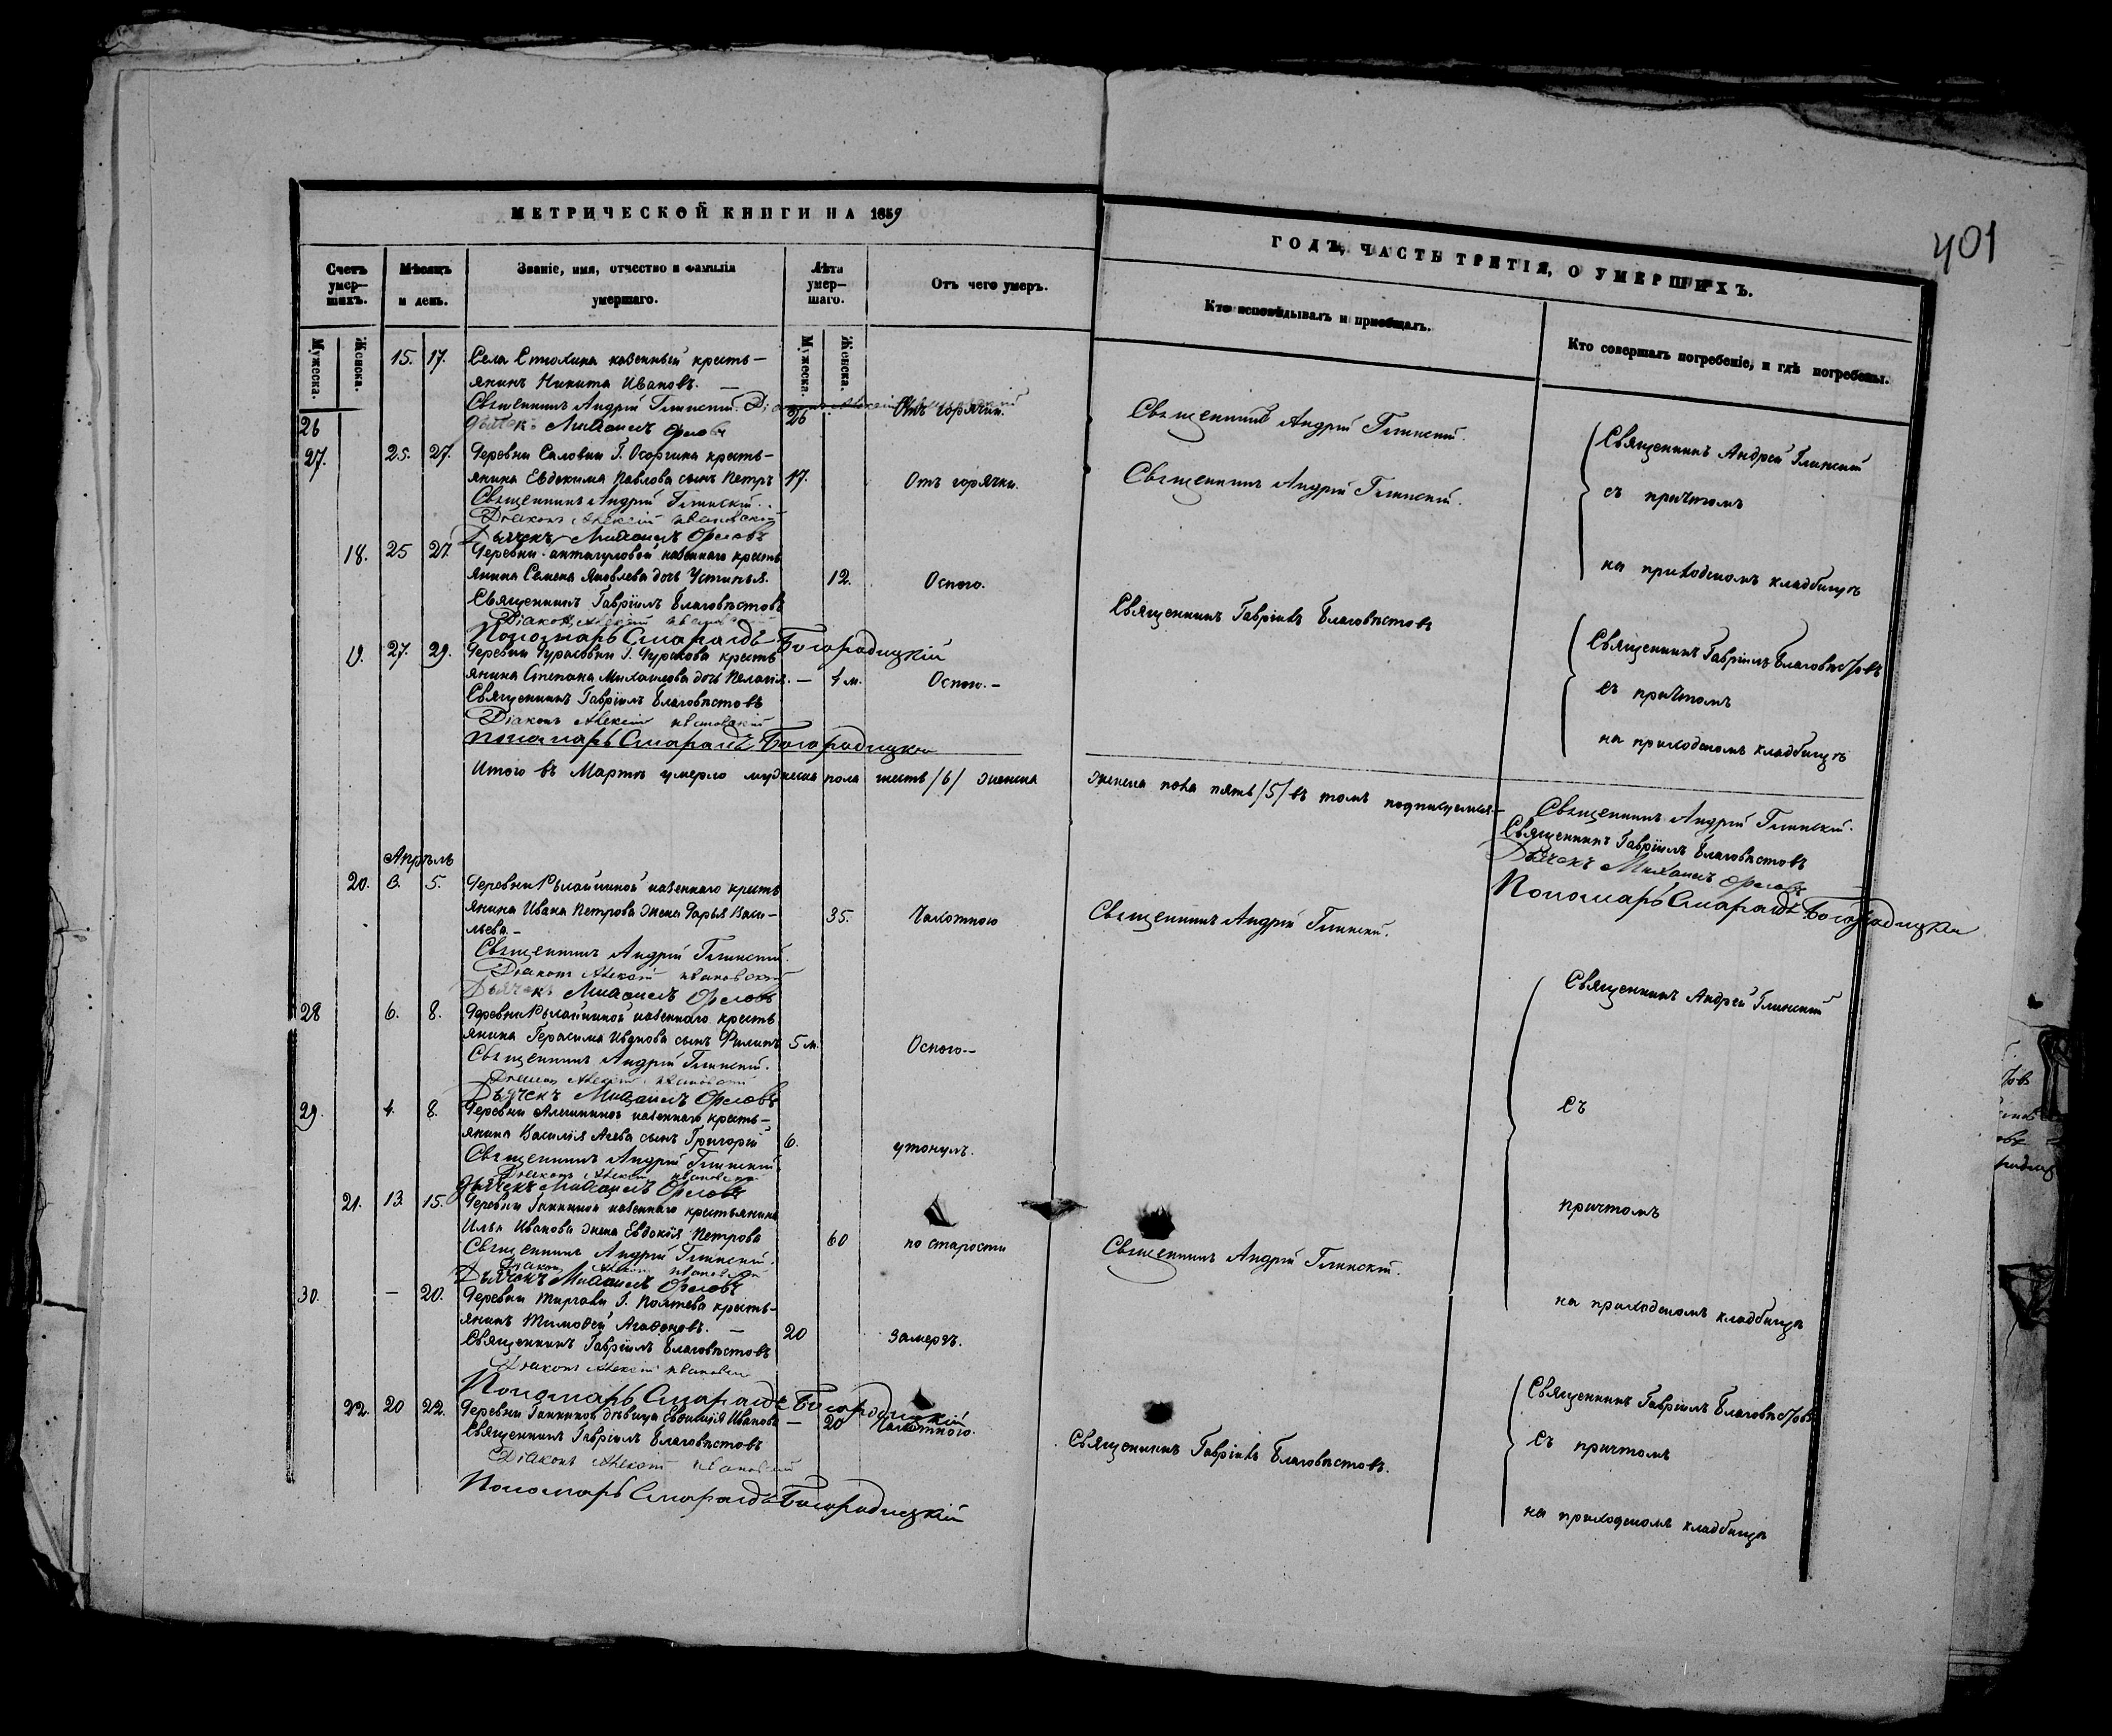 МЕТРИЧЕСКОЙ КНИГИ НА 1859
ГОДЪ, ЧАСТЬ ТРЕТІЯ, О УМЕРШИХЪ.
401
Счетъ умер-шихъ.
Мѣсяцъ и день.
Званіе, имя, отчество и фамилія умершаго.
Лѣта умер-шаго.
Отъ чего умеръ.
Кто исповѣдывалъ и пріобщалъ.
Кто совершалъ погребеніе, и гдѣ погребены.
Мужеска.
Женска.
Мужеска.
Женска.
15. 17. Села казенный кресть-
янинъ Никита Ивановъ. —
Священникъ Андрій Глинскій.
26 Дьячекъ Михаилъ Орловъ 26 Отъ горячки.
Священникъ Андрій Глинскій.
27. 25. 27. Деревни Г. Осоргина кресть-
янина Евдокима Павлова сынъ Петръ 17. Отъ горячки.
Священникъ Андрій Глинскій.
Діаконъ Алексій Ивановскій
Дьячекъ Михаилъ Орловъ
Священникъ Андрій Глинскій.
Священникъ Андрей Глинский
съ причтомъ
на приходскомъ кладбищѣ
18. 25 27. Деревни казеннаго кресть
янина Семена Яковлева дочь Устинья. 12. Оспою.
Священникъ Гавріилъ Благовѣстовъ
Діаконъ Алексій Ивановскій
Пономарь Смарагдъ Богородицкій
Священникъ Гавріилъ Благовѣстовъ
19. 27. 29. Деревни Г. Чурикова кресть
янина Степана Михаилова дочь Пелагія. — 4 м. Оспою. —
Священникъ Гавріилъ Благовѣстовъ
Діаконъ Алексій Ивановскій
Пономарь Смарагдъ Богородицкій
Священникъ Гавріилъ Благовѣстовъ
съ причтомъ
на приходскомъ кладбищѣ
Итого въ Мартѣ умерло мужеска пола шесть /6/ женска
женска пола пять /5/ въ томъ подписуемся —
Священникъ Андрій Глинскій.
Священникъ Гавріилъ Благовѣстовъ
Дьячекъ Михаилъ Орловъ
Пономарь Смарагдъ Богородицкій
Апрѣль
20. 3. 5. Деревни казеннаго кресть
янина Ивана Петрова жена Дарья Васи-
льева. — 35. Чахоткою
Священникъ Андрій Глинскій.
Діаконъ Алексій Ивановскій
Дьячекъ Михаилъ Орловъ
Священникъ Андрій Глинскій.
Священникъ Андрей Глинский
28 6. 8. Деревни казеннаго кресть
янина Герасима Иванова сынъ Филипъ 5 м. Оспою. —
Священникъ Андрій Глинскій.
Діаконъ Алексій Ивановскій
Дьячекъ Михаилъ Орловъ
съ
29. 4. 8. Деревни казеннаго кресть-
янина Василія сынъ Григорій 6. утонулъ.
Священникъ Андрій Глинскій.
Діаконъ Алексій Ивановскій
Дьячекъ Михаилъ Орловъ
причтомъ
21. 13. 15. Деревни казеннаго крестьянина
Ильи Иванова жена Евдокія Петрова 60 по старости
Священникъ Андрій Глинскій.
Діаконъ Алексій Ивановскій
Дьячекъ Михаилъ Орловъ
Священникъ Андрій Глинскій.
на приходскомъ кладбищѣ
30. — 20. Деревни Г. кресть-
янинъ Тимофей Агафоновъ. — 20 замерзъ.
Священникъ Гавріилъ Благовѣстовъ
Діаконъ Алексій Ивановскій
Пономарь Смарагдъ Богородицкій
22. 20 22. Деревни дѣвица Иванова — 20 Чахоткою.
Священникъ Гавріилъ Благовѣстовъ
Діаконъ Алексій Ивановскій
Пономарь Смарагдъ Богородицкій
Священникъ Гавріилъ Благовѣстовъ.
Священникъ Гавріилъ Благовѣстовъ
съ причтомъ
на приходскомъ кладбищѣ